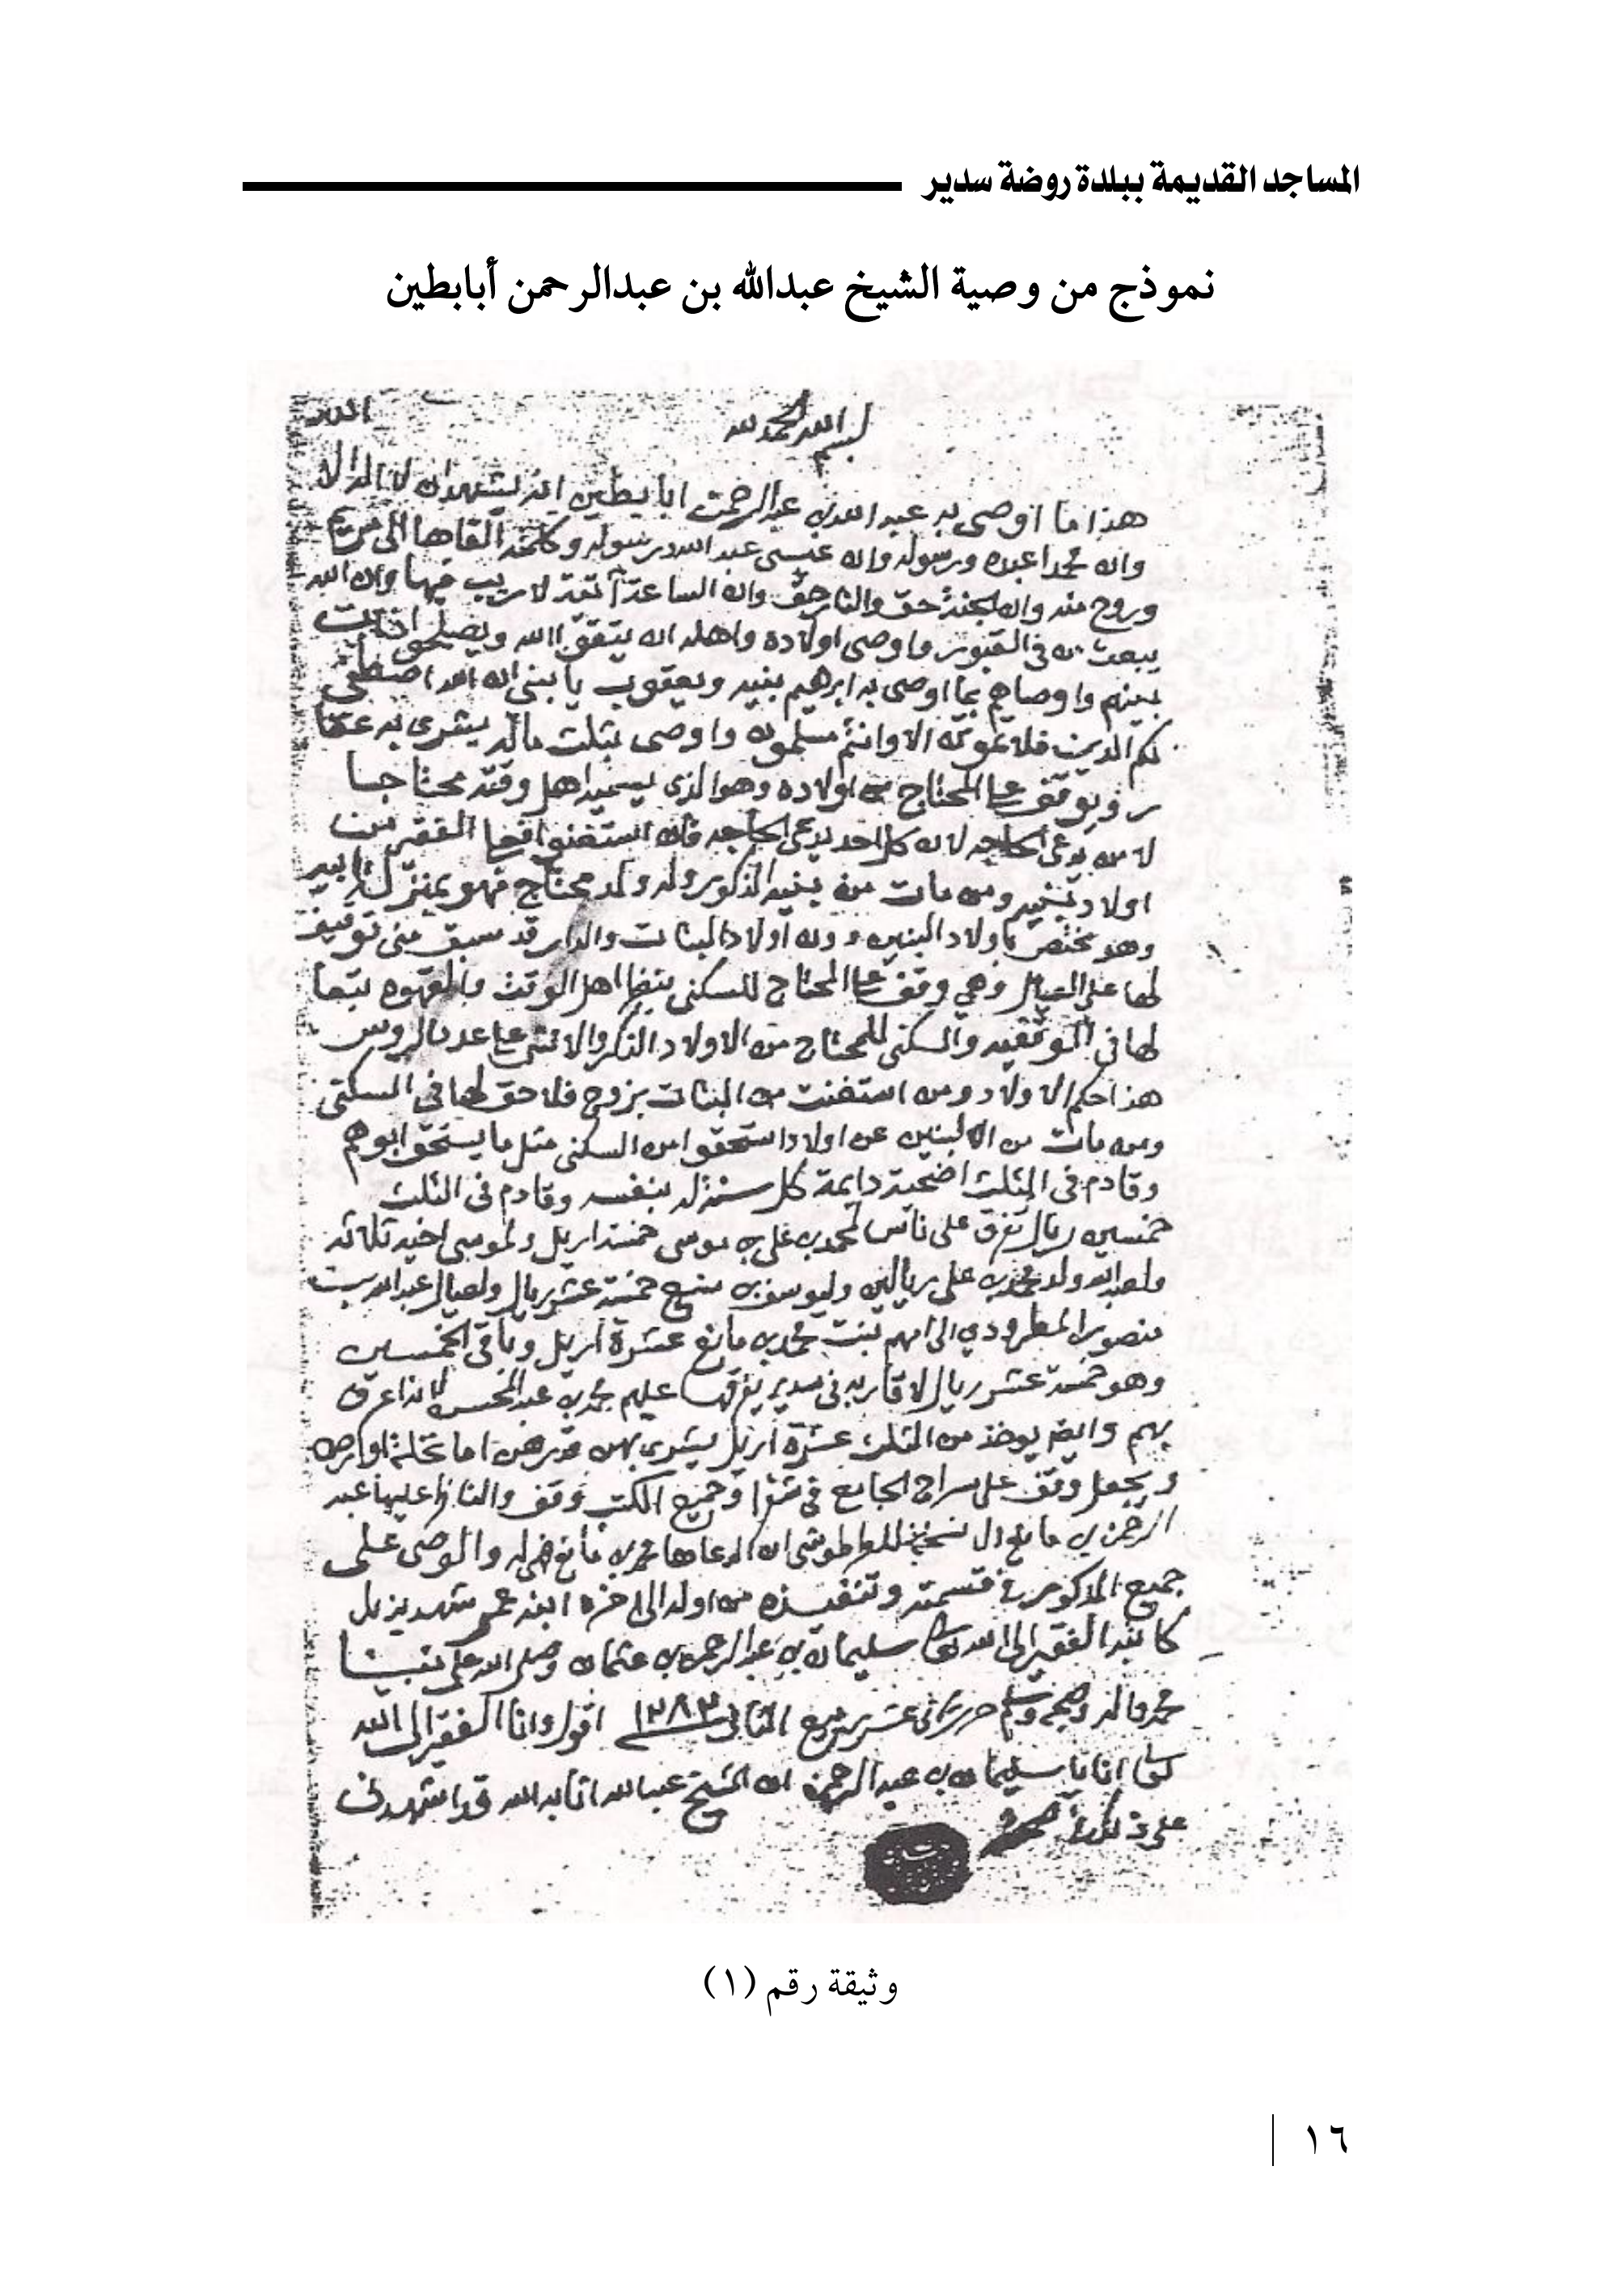 المساجد القديمة ببلدة روضة سدير
نموذج من وصية الشيخ عبدالله بن عبدالرحمن أبابطين
بسم الله الحمد لله
هذا ما اوصى به عبد الله بن عبد الرحمن ابا بطين انه يشهد ان لا اله الا
وان محمدا عبده ورسوله وان عيسى عبد الله ورسوله وكلمته القاها الى مريم
وروح منه وان الجنة حق والنار حق وان الساعة آتية لا ريب فيها وان الله
يبعث من في القبور واوصى اولاده واهله ان يتقوا الله ويصلحوا ذات
بينهم واوصاهم بما اوصى به ابرهيم بنيه ويعقوب يا بني ان الله اصطفى
لكم الدين فلا تموتن الا وانتم مسلمون واوصى بثلث ماله يشرى به عقا
ر ويوقف على المحتاج من اولاده وهو الذي يسميه اهل وقته محتاجا
لا من يدعي الحاجه لان كل احد يدعي الحاجه فان استغنوا فعلى الفقير من
اولاد بنيه ومن مات من بنيه الذكور وله ولد محتاج فهو بمنزلة ابيه
وهو مختص باولاد البنين دون اولاد البنات والدار قد سبق مني توقيف
لها على العيال وهي وقف على المحتاج للسكنى بنظر اهل الوقف والقهوه تبعا
لها في التوقيف والسكنى للمحتاج من الاولاد الذكر والانثى على عدد الروس
هذا حكم الاولاد ومن استغنت من البنات بزوج فلا حق لها في السكنى
ومن مات من البنين عن اولاد استحقوا من السكنى مثل ما يستحق ابوهم
وقادم في الثلث اضحية دايمة كل سنة له بنفسه وقادم في الثلث
خمسين ريال تفرق على ناس لمحمد بن علي بن موسى خمسة اريل ولموسى اخيه ثلاثه
ولعبدالله ولد محمد بن علي ريالين وليوسف بن خمسة عشر ريال ولعيال عبدالله بن
منصور المطرودي الى امهم بنت محمد بن مانع عشرة اريل وباقي الخمسين
وهو خمسة عشر ريال لاقاربه في سدير يفرقها عليهم محمد بن عبد المحسن لانه اعرف
بهم وايضا يوخذ من الثلث عشرة اريل يشرى بهن قدرهن اما نخلة او ارض
ويجعل وقف على سراج الجامع في شقرا وجميع الكتب وقف والناظر عليها عبد
الرحمن بن مانع الا نسخة للطرطوشي ان ادعاها محمد بن مانع فهي له والوصي على
جميع المذكور في قسمته وتنفيذه من اوله الى اخره ابنه عمر شهد بذلك
كاتبه الفقير الى الله تعالى سليمان بن عبد الرحمن بن عثمان وصلى الله على نبينا
محمد واله وصحبه وسلم حرر ثاني عشر ربيع الثاني سنة ١٢٨٢ اقول وانا الفقير الى الله
تعالى سليمان بن عبد الرحمن ان الشيخ عبدالله اثابه الله قد اشهدني
على ذلك
وثيقة رقم (١)
١٦